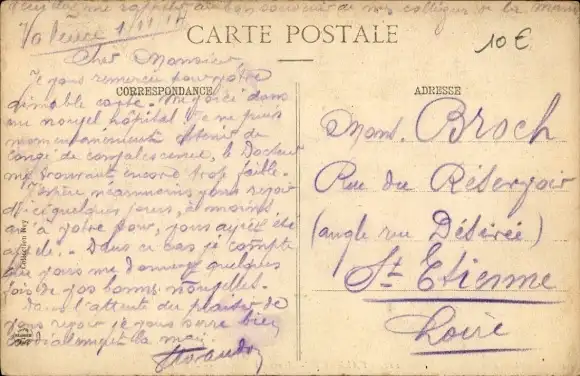 rappeler au bon souvenir de mes collègues de la
Valence 1/11/17
CARTE POSTALE
10€
Cher Monsieur
CORRESPONDANCE
ADRESSE
Je vous remercie pour votre
aimable carte. Me voici dans
un nouvel hôpital. Je ne puis
momentanément obtenir de
congé de convalescence, le Docteur
me trouvant encore trop faible.
néanmoins vous revoir
d'ici quelques jours, à moins
qu'à votre tour, vous ayiez été
appelé. Dans ce cas je compte
que vous me donnerez quelques
fois de vos bonnes nouvelles.
Dans l'attente du plaisir de
vous revoir je vous serre bien
cordialement la main
Mons. Broch
Rue du Réservoir
(angle rue Désirée)
St Etienne
Loire
Collection Rey